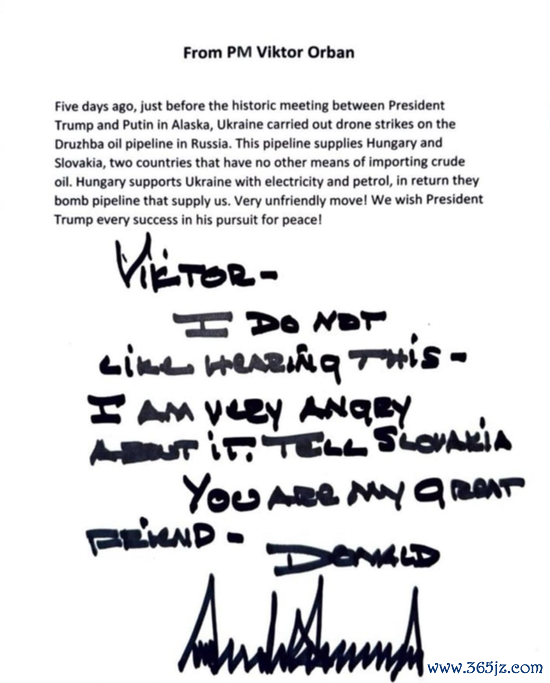 From PM Viktor Orban
Five days ago, just before the historic meeting between President
Trump and Putin in Alaska, Ukraine carried out drone strikes on the
Druzhba oil pipeline in Russia. This pipeline supplies Hungary and
Slovakia, two countries that have no other means of importing crude
oil. Hungary supports Ukraine with electricity and petrol, in return they
bomb pipeline that supply us. Very unfriendly move! We wish President
Trump every success in his pursuit for peace!
VIKTOR -
I DO NOT
LIKE HEARING THIS -
I AM VERY ANGRY
ABOUT IT. TELL SLOVAKIA
YOU ARE MY GREAT
FRIEND -
DONALD
www.365jz.com